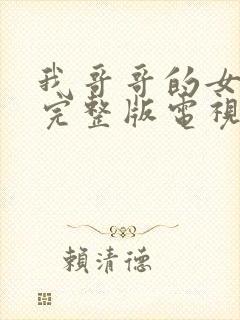 我哥哥的女
完整版電視
賴清德